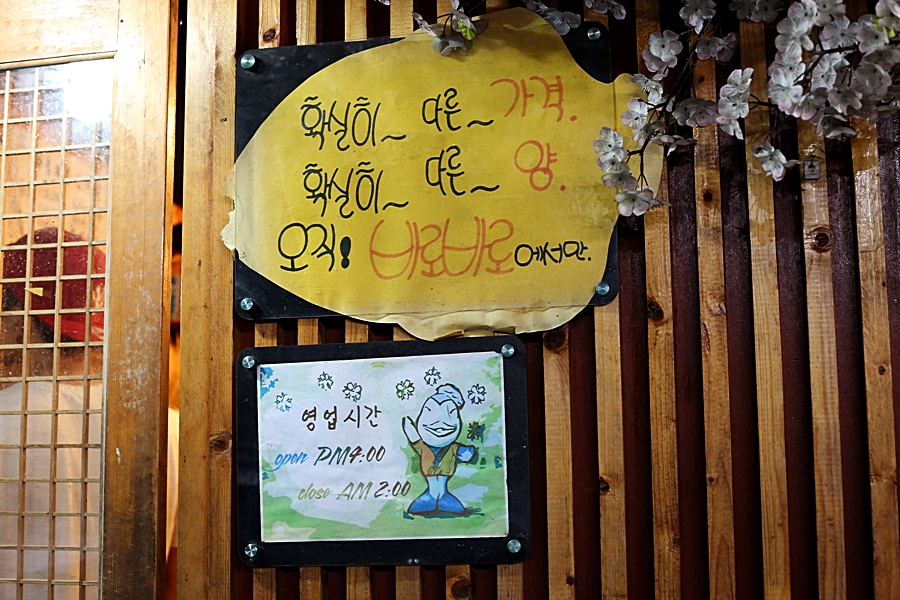 확실히~ 다른~ 가격.
확실히~ 다른~ 양.
오직! 바로바로에서만.
영업시간
open PM4:00
close AM 2:00